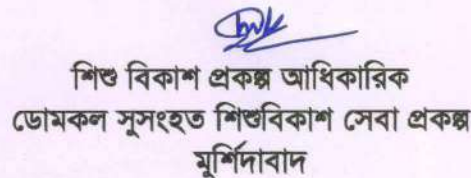 শিশু বিকাশ প্রকল্প আধিকারিক
ডোমকল সুসংহত শিশুবিকাশ সেবা প্রকল্প
মুর্শিদাবাদ